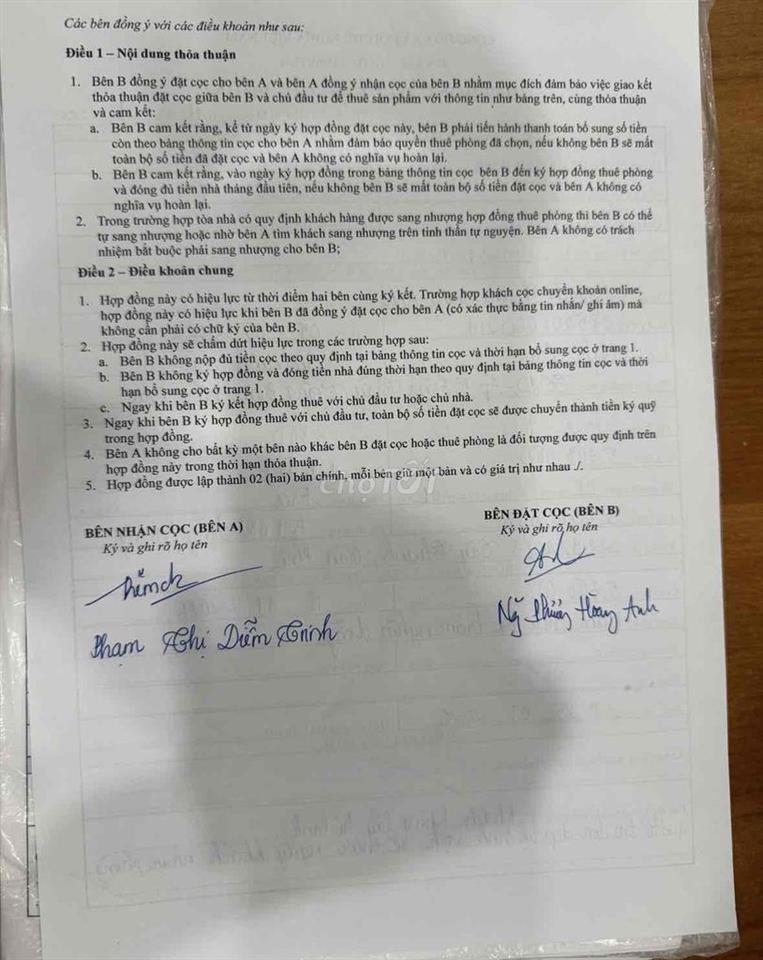 Các bên đồng ý với các điều khoản như sau:
Điều 1 – Nội dung thỏa thuận
1. Bên B đồng ý đặt cọc cho bên A và bên A đồng ý nhận cọc của bên B nhằm mục đích đảm bảo việc giao kết
thỏa thuận đặt cọc giữa bên B và chủ đầu tư để thuê sản phẩm với thông tin như bảng trên, cùng thỏa thuận
và cam kết:
a. Bên B cam kết rằng, kể từ ngày ký hợp đồng đặt cọc này, bên B phải tiến hành thanh toán bổ sung số tiền
còn theo bảng thông tin cọc cho bên A nhằm đảm bảo quyền thuê phòng đã chọn, nếu không bên B sẽ mất
toàn bộ số tiền đã đặt cọc và bên A không có nghĩa vụ hoàn lại.
b. Bên B cam kết rằng, vào ngày ký hợp đồng trong bảng thông tin cọc bên B đến ký hợp đồng thuê phòng
và đóng đủ tiền nhà tháng đầu tiên, nếu không bên B sẽ mất toàn bộ số tiền đặt cọc và bên A không có
nghĩa vụ hoàn lại.
2. Trong trường hợp tòa nhà có quy định khách hàng được sang nhượng hợp đồng thuê phòng thì bên B có thể
tự sang nhượng hoặc nhờ bên A tìm khách sang nhượng trên tinh thần tự nguyện. Bên A không có trách
nhiệm bắt buộc phải sang nhượng cho bên B;
Điều 2 – Điều khoản chung
1. Hợp đồng này có hiệu lực từ thời điểm hai bên cùng ký kết. Trường hợp khách cọc chuyển khoản online,
hợp đồng này có hiệu lực khi bên B đã đồng ý đặt cọc cho bên A (có xác thực bằng tin nhắn/ ghi âm) mà
không cần phải có chữ ký của bên B.
2. Hợp đồng này sẽ chấm dứt hiệu lực trong các trường hợp sau:
a. Bên B không nộp đủ tiền cọc theo quy định tại bảng thông tin cọc và thời hạn bổ sung cọc ở trang 1.
b. Bên B không ký hợp đồng và đóng tiền nhà đúng thời hạn theo quy định tại bảng thông tin cọc và thời
hạn bổ sung cọc ở trang 1.
c. Ngay khi bên B ký kết hợp đồng thuê với chủ đầu tư hoặc chủ nhà.
3. Ngay khi bên B ký hợp đồng thuê với chủ đầu tư, toàn bộ số tiền đặt cọc sẽ được chuyển thành tiền ký quỹ
trong hợp đồng.
4. Bên A không cho bất kỳ một bên nào khác bên B đặt cọc hoặc thuê phòng là đối tượng được quy định trên
hợp đồng này trong thời hạn thỏa thuận.
5. Hợp đồng được lập thành 02 (hai) bản chính, mỗi bên giữ một bản và có giá trị như nhau ./.
chợTỐT
BÊN NHẬN CỌC (BÊN A)
Ký và ghi rõ họ tên
Phạm Thị Diễm Trinh
BÊN ĐẶT CỌC (BÊN B)
Ký và ghi rõ họ tên
Hoàng Anh